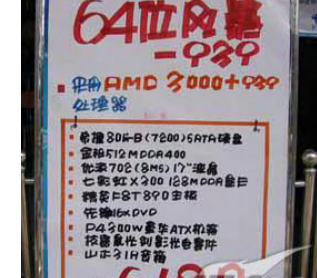 64位风暴
-939
■ 采用AMD 3000+939
处理器
▪ 希捷80G-B(7200)SATA硬盘
▪ 金胜512MDDR400
▪ 优派702(8MS)17"液晶
▪ 七彩虹X300 128MDDR显卡
▪ 精英 F8T890主板
▪ 先锋16XDVD
▪ P4300W豪华ATX机箱
▪ 技嘉光刻影光电套件
▪ 山水31H音箱